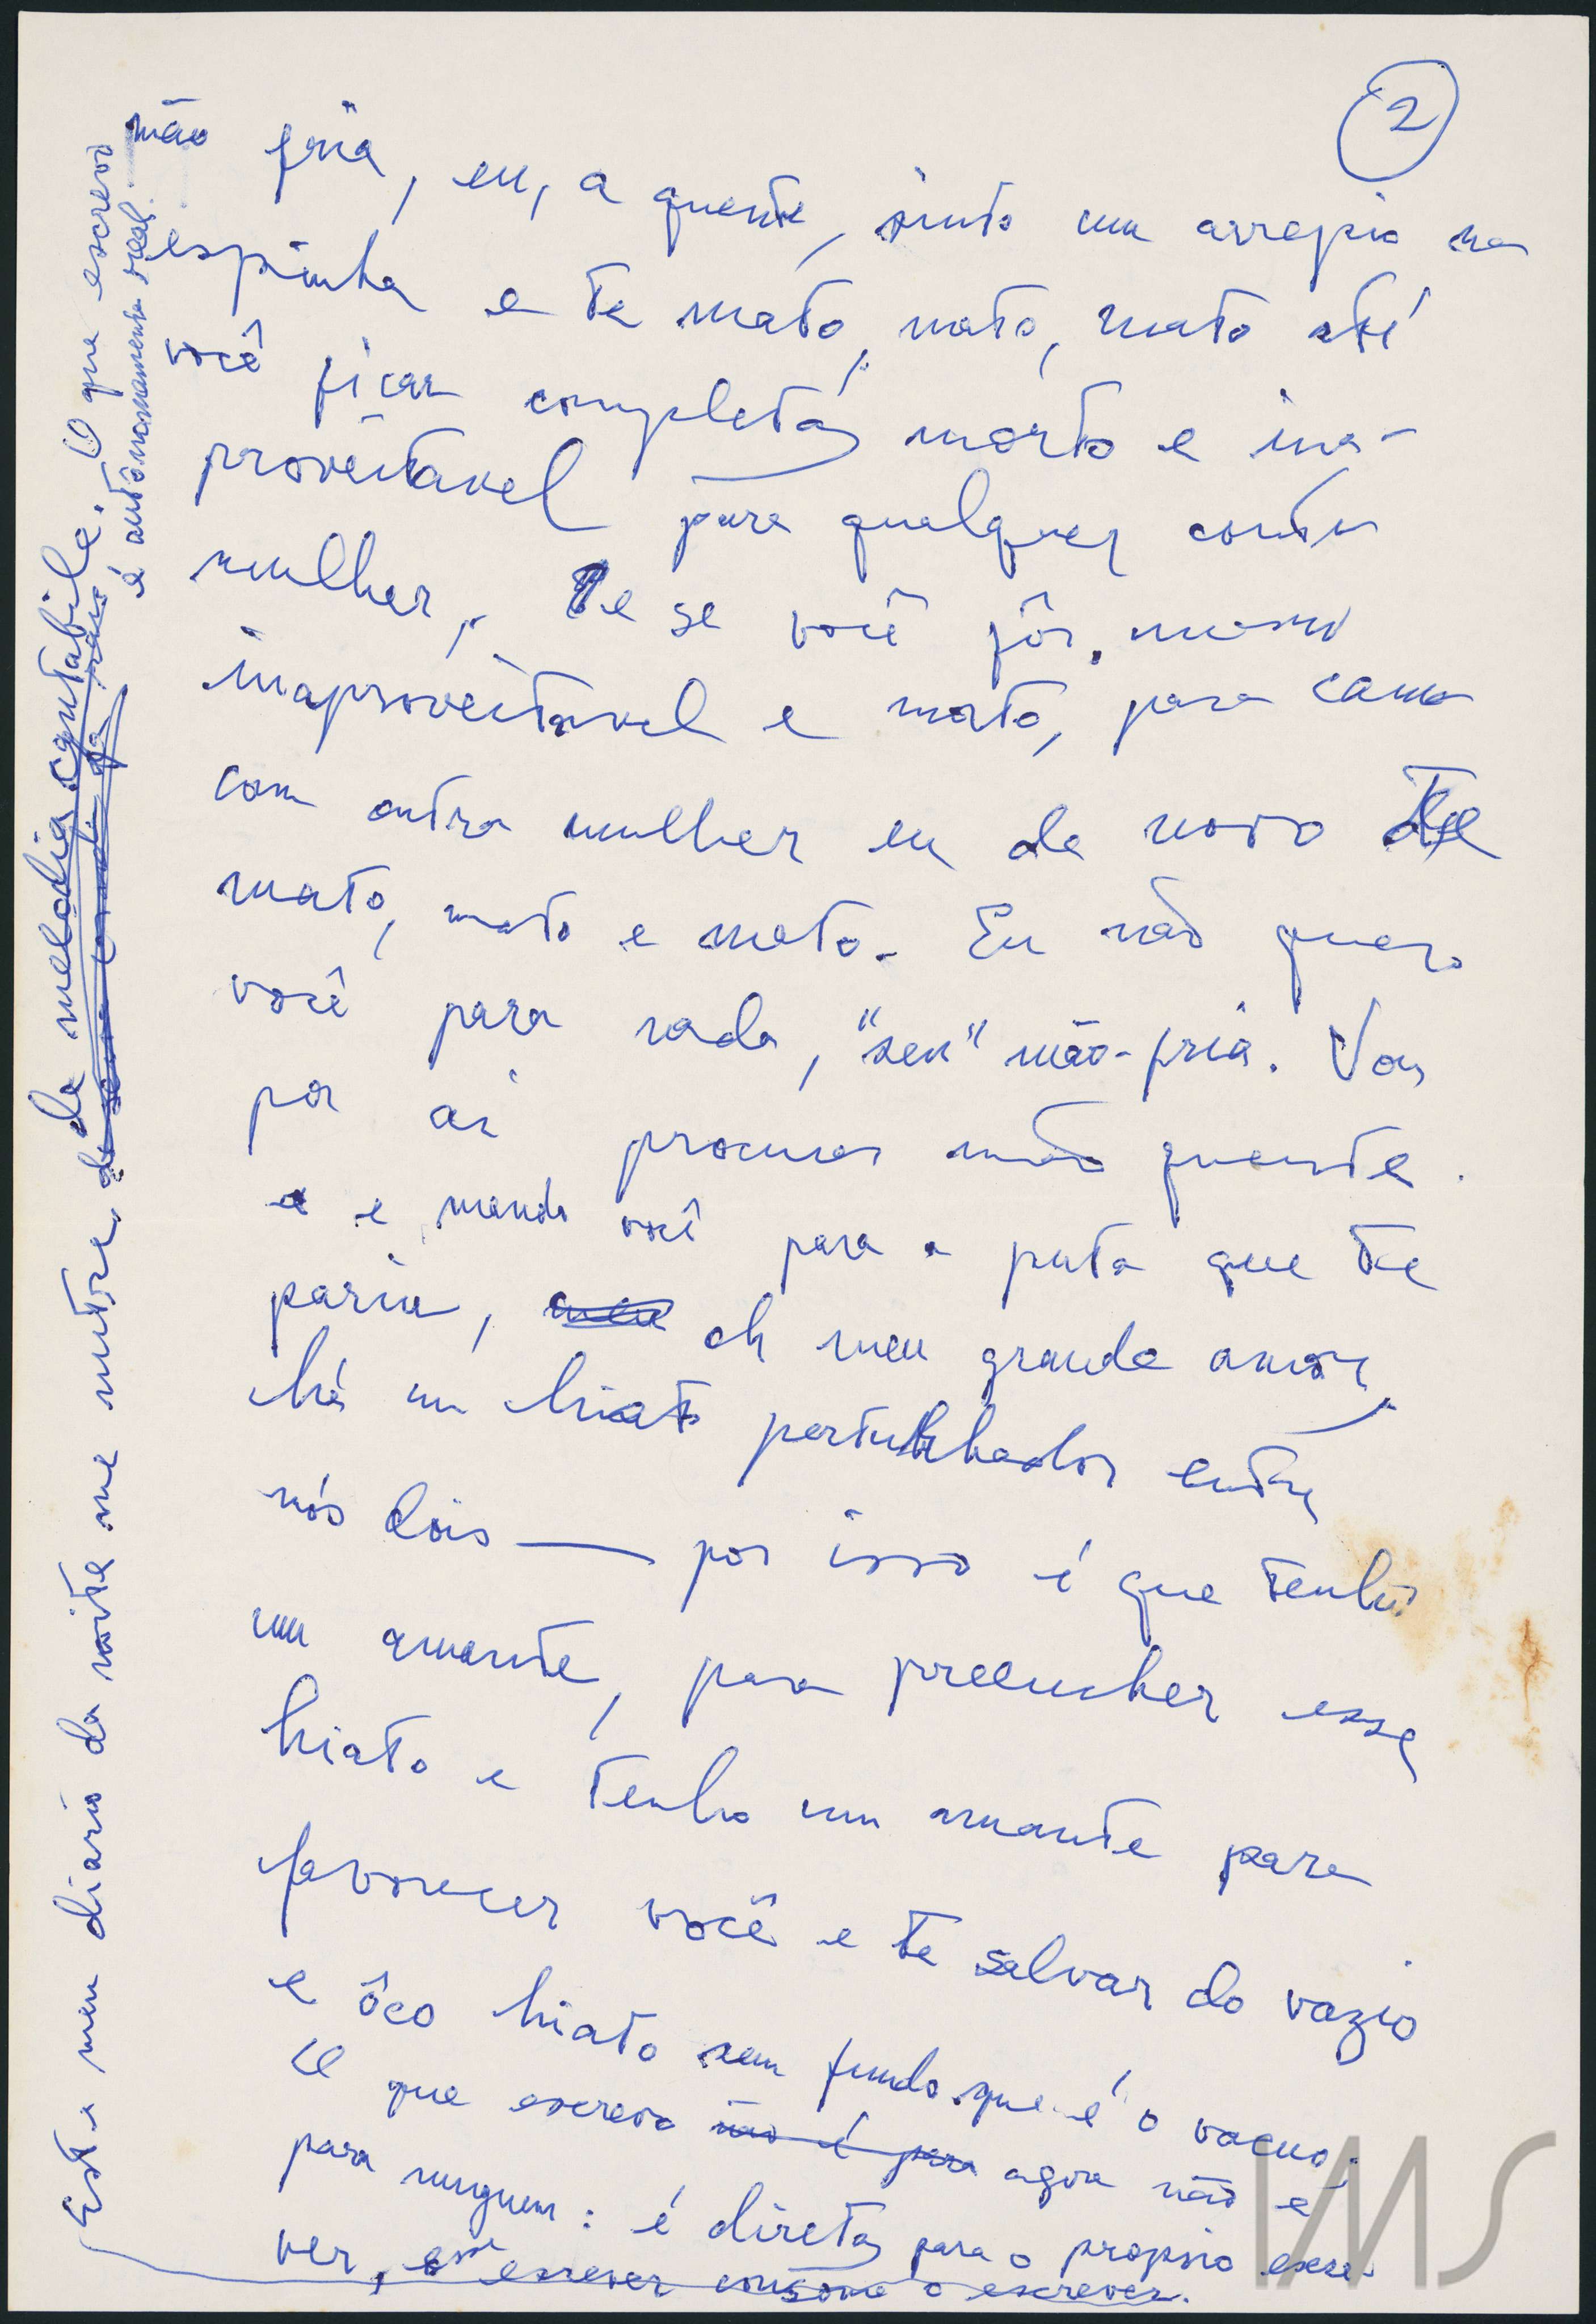 2
mão fria, eu, a quente, sinto um arrepio na
espinha e te mato, mato, mato até
você ficar completa/ morto e ina-
proveitavel para qualquer outra
mulher. e se você fôr, mesmo
inaproveitavel e morto, para cama
com outra mulher eu de novo te
mato, mato e mato. Eu não quero
você para nada, "seu" mão-fria. Vou
por aí procurar mão quente.
e mando você para a puta que te
pariu, oh meu grande amor,
há um hiato perturbador entre
nós dois — por isso é que tenho
um amante, para preencher esse
hiato e tenho um amante para
favorecer você e te salvar do vazio
e ôco hiato sem fundo que é o vacuo.
O que escrevo não é para agora não é
para ninguem: é direta/ para o proprio escre-
ver, esse escrever consome o escrever.
Este meu diario da noite me nutre da melodia cantabile. O que escrevo
é autonomamente real.
IMS